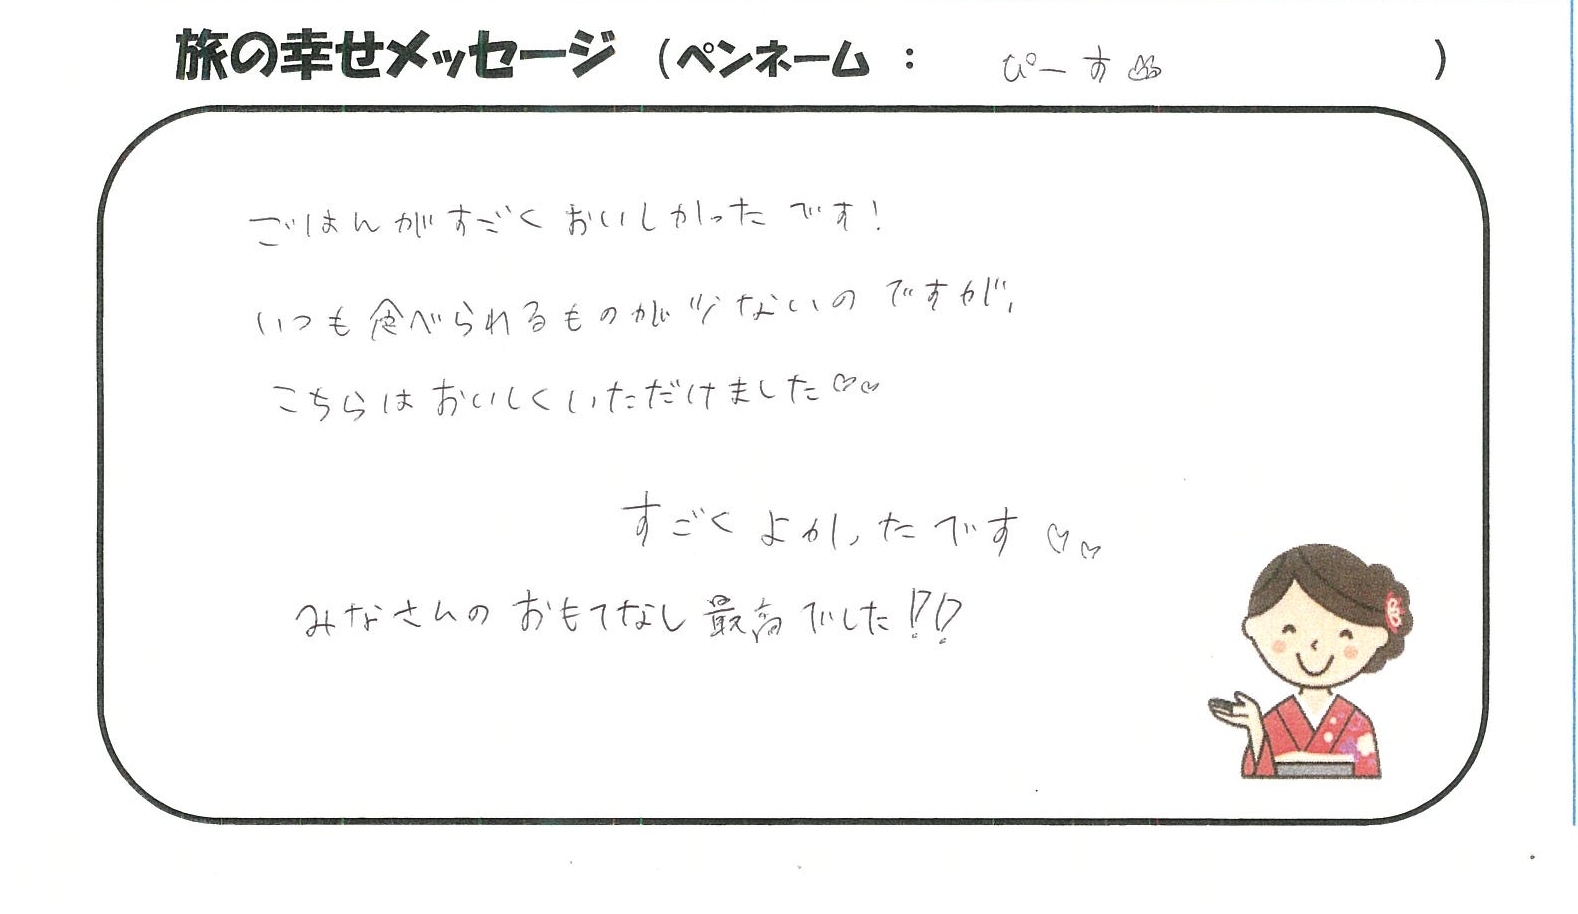 旅の幸せメッセージ (ペンネーム : ぴーす )
ごはんがすごくおいしかったです!
いつも食べられるものが少ないのですが、
こちらはおいしくいただけました♡♡
すごくよかったです♡♡
みなさんのおもてなし最高でした!!